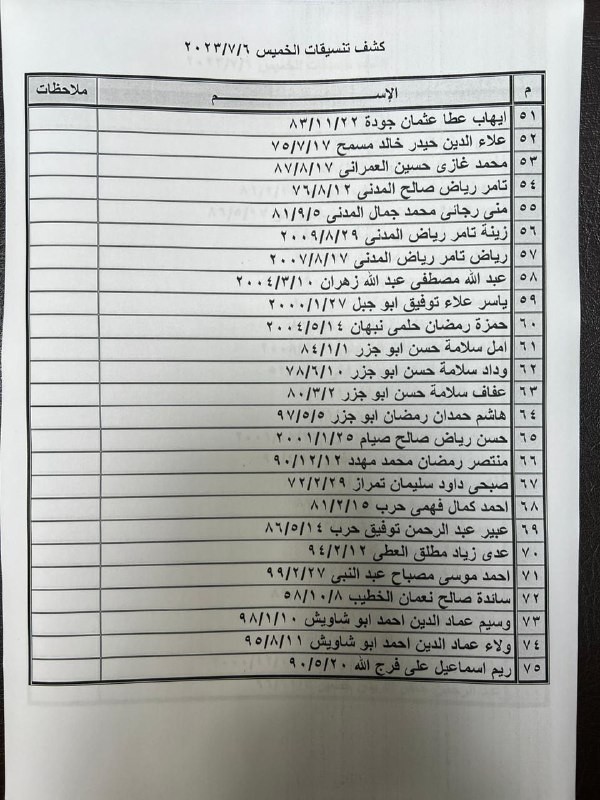 كشف تنسيقات الخميس ٢٠٢٣/٧/٦
م الإســــــم ملاحظات
٥١ ايهاب عطا عثمان جودة ٨٣/١١/٢٢
٥٢ علاء الدين حيدر خالد مسمح ٧٥/٧/١٧
٥٣ محمد غازى حسين العمرانى ٨٧/٨/١٧
٥٤ تامر رياض صالح المدنى ٧٦/٨/١٢
٥٥ منى رجائى محمد جمال المدنى ٨١/٩/٥
٥٦ زينة تامر رياض المدنى ٢٠٠٩/٨/٢٩
٥٧ رياض تامر رياض المدنى ٢٠٠٧/٨/١٧
٥٨ عبد الله مصطفى عبد الله زهران ٢٠٠٤/٣/١٠
٥٩ ياسر علاء توفيق ابو جبل ٢٠٠٠/١/٢٧
٦٠ حمزة رمضان حلمى نبهان ٢٠٠٤/٥/١٤
٦١ امل سلامة حسن ابو جزر ٨٤/١/١
٦٢ وداد سلامة حسن ابو جزر ٧٨/٦/١٠
٦٣ عفاف سلامة حسن ابو جزر ٨٠/٣/٢
٦٤ هاشم حمدان رمضان ابو جزر ٩٧/٥/٥
٦٥ حسن رياض صالح صيام ٢٠٠١/١/٢٥
٦٦ منتصر رمضان محمد مهدد ٩٠/١٢/١٢
٦٧ صبحى داود سليمان تمراز ٧٢/٢/٢٩
٦٨ احمد كمال فهمى حرب ٨١/٢/١٥
٦٩ عبير عبد الرحمن توفيق حرب ٨٦/٥/١٤
٧٠ عدى زياد مطلق العطى ٩٤/٢/١٢
٧١ احمد موسى مصباح عبد النبى ٩٩/٢/٢٧
٧٢ ساندة صالح نعمان الخطيب ٥٨/١٠/٨
٧٣ وسيم عماد الدين احمد ابو شاويش ٩٨/١/١٠
٧٤ ولاء عماد الدين احمد ابو شاويش ٩٥/٨/١١
٧٥ ريم اسماعيل على فرج الله ٩٠/٥/٢٠